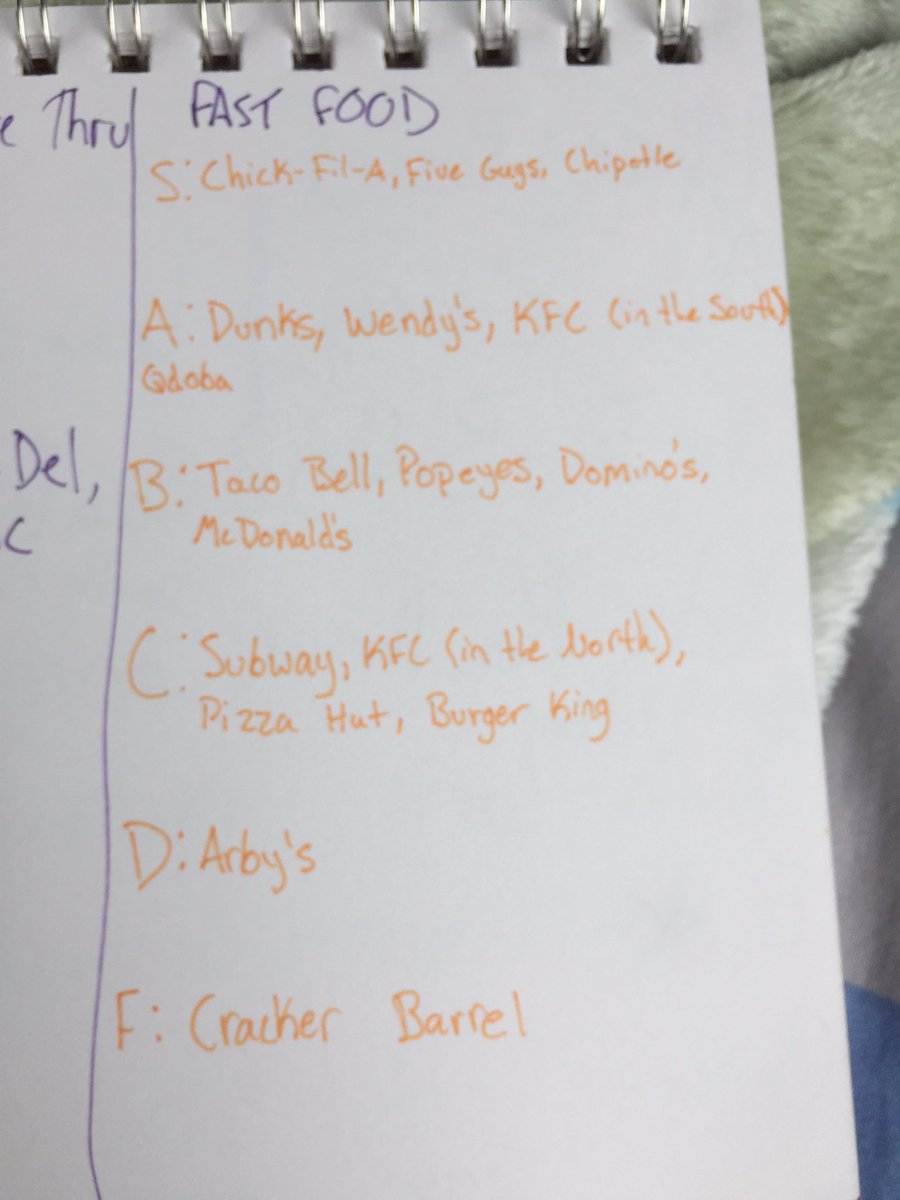 Thru
FAST FOOD
S: Chick-Fil-A, Five Guys, Chipotle
A: Dunks, Wendy's, KFC (in the South)
Qdoba
Del,
B: Taco Bell, Popeyes, Domino's,
McDonald's
C: Subway, KFC (in the North),
Pizza Hut, Burger King
D: Arby's
F: Cracker Barrel